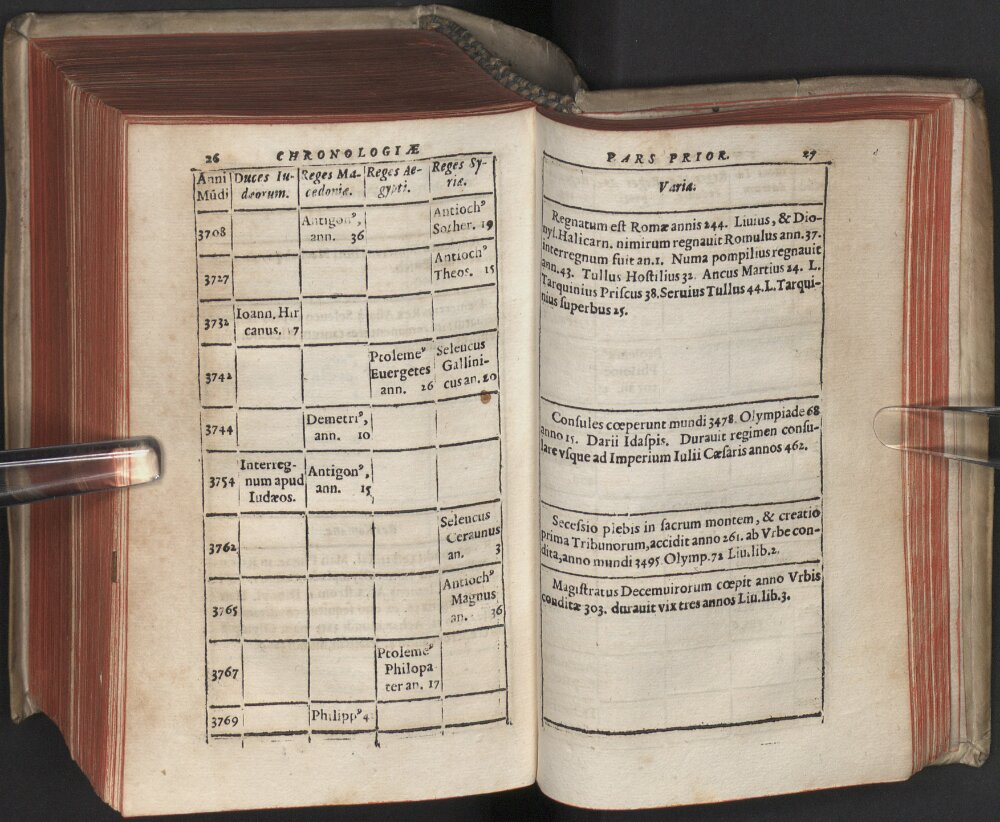 26 CHRONOLOGIÆ
Anni Mūdi
Duces Iu-
dæorum.
Reges Ma-
cedoniæ.
Reges Ae-
gypti.
Reges Sy-
riæ.
3708
Antigonꝰ,
ann. 36
Antiochꝰ
Sother. 19
3727
Antiochꝰ
Theos. 15
3732
Ioann. Hir
canus. 7
3742
Ptolemeꝰ
Euergetes
ann. 26
Seleucus
Gallini-
cus an. 20
3744
Demetriꝰ,
ann. 10
3754
Interreg-
num apud
Iudæos.
Antigonꝰ,
ann. 15
3762
Seleucus
Ceraunus
an. 3
3765
Antiochꝰ
Magnus
an. 36
3767
Ptolemeꝰ
Philopa
ter an. 17
3769
Philippꝰ 4
PARS PRIOR. 27
Varia.
Regnatum est Romæ annis 244. Liuius, & Dio-
nys. Halicarn. nimirum regnauit Romulus ann. 37.
interregnum fuit an. 1. Numa pompilius regnauit
ann. 43. Tullus Hostilius 32. Ancus Martius 24. L.
Tarquinius Priscus 38. Seruius Tullus 44. L. Tarqui-
nius superbus 25.
Consules cœperunt mundi 3478. Olympiade 68
anno 15. Darii Idaspis. Durauit regimen consu-
lare vsque ad Imperium Iulii Cæsaris annos 462.
Secessio plebis in sacrum montem, & creatio
prima Tribunorum, accidit anno 261. ab Vrbe con-
dita, anno mundi 3495 Olymp. 72 Liu. lib. 2.
Magistratus Decemuirorum cœpit anno Vrbis
conditæ 303. durauit vix tres annos Liu. lib. 3.